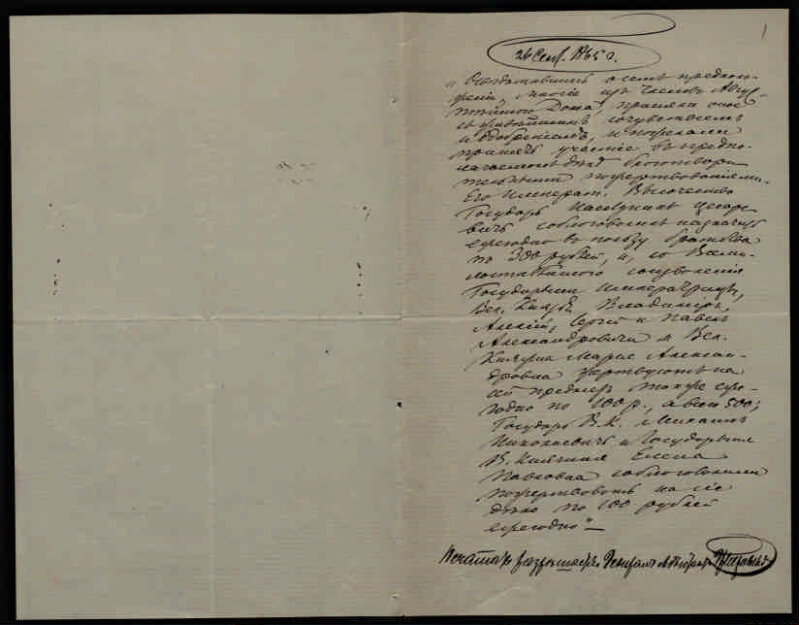 1
26 Сент. 1865 г.
" Осведомившись о семъ предполо-
женіи, многіе изъ членовъ Авгу-
стѣйшаго Дома, приняли оное
съ живѣйшимъ сочувствіемъ
и одобреніемъ, и пожелали
принять участіе въ предпо-
лагаемомъ дѣлѣ благотвори-
тельными пожертвованіями.
Его Императ. Высочество
Государь Наслѣдникъ Цесаре-
вичъ соблаговолилъ назначить
ежегодно въ пользу братства
по 300 рублей, и, со Всеми-
лостивѣйшаго соизволенія
Государыни Императрицы,
Вел. Князья Владиміръ,
Алексій, Сергій и Павелъ
Александровичи и Вел.
Княжна Марія Алексан-
дровна жертвуютъ на
сей предметъ также еже-
годно по 100 р., а всего 500;
Государь В. К. Михаилъ
Николаевичъ и Государыня
В. Княгиня Елена
Павловна соблаговолили
пожертвовать на сіе
дѣло по 100 рублей
ежегодно"
Печатать разрѣшаетъ. Генералъ-